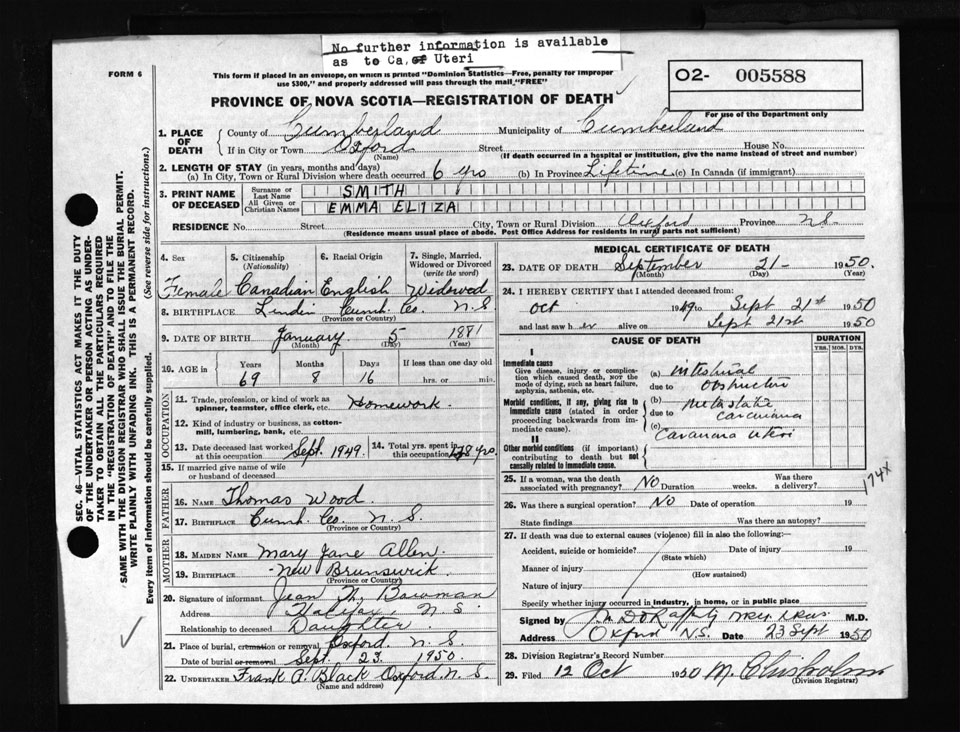 No further information is available
as to Ca, of Uteri
FORM 6
This form if placed in an envelope, on which is printed "Dominion Statistics—Free, penalty for improper
use $300," and properly addressed will pass through the mail "FREE"
O2- 005588
For use of the Department only
PROVINCE OF NOVA SCOTIA—REGISTRATION OF DEATH
1. PLACE OF DEATH
County of Cumberland Municipality of Cumberland
If in City or Town Oxford Street House No.
(Name) (If death occurred in a hospital or institution, give the name instead of street and number)
2. LENGTH OF STAY (in years, months and days)
(a) In City, Town or Rural Division where death occurred 6 yrs (b) In Province Lifetime (c) In Canada (if immigrant)
3. PRINT NAME OF DECEASED
Surname or Last Name SMITH
All Given or Christian Names EMMA ELIZA
RESIDENCE No. Street City, Town or Rural Division Oxford Province N.S.
(Residence means usual place of abode. Post Office Address for residents in rural parts not sufficient)
4. Sex Female
5. Citizenship (Nationality) Canadian
6. Racial Origin English
7. Single, Married, Widowed or Divorced (write the word) Widowed
8. BIRTHPLACE Cumb. Co. N.S.
(Province or Country)
9. DATE OF BIRTH January 5 1881
(Month) (Day) (Year)
10. AGE in Years Months Days If less than one day old
69 8 16 hrs. or min.
OCCUPATION
11. Trade, profession, or kind of work as
spinner, teamster, office clerk, etc. Homework.
12. Kind of industry or business, as cotton-
mill, lumbering, bank, etc.
13. Date deceased last worked at this occupation Sept. 1949.
14. Total yrs. spent in this occupation 48 yrs.
15. If married give name of wife
or husband of deceased
FATHER
16. NAME Thomas Wood.
17. BIRTHPLACE Cumb. Co. N.S.
(Province or Country)
MOTHER
18. MAIDEN NAME Mary Jane Allen.
19. BIRTHPLACE New Brunswick.
(Province or Country)
20. Signature of informant Jean M. Bowman
Address Halifax, N.S.
Relationship to deceased Daughter.
21. Place of burial, cremation or removal Oxford. N.S.
Date of burial or removal Sept. 23. 1950.
22. UNDERTAKER Frank A. Black Oxford. N.S.
(Name and address)
MEDICAL CERTIFICATE OF DEATH
23. DATE OF DEATH September 21- 1950.
(Month) (Day) (Year)
24. I HEREBY CERTIFY that I attended deceased from:
Oct 1949 to Sept 21st 1950
and last saw her alive on Sept 21st 1950
CAUSE OF DEATH
DURATION
YRS. MOS. DYS.
I
Immediate cause
Give disease, injury or complica-
tion which caused death, NOT the
mode of dying, such as heart failure,
asphyxia, asthenia, etc.
(a) intestinal
due to obstruction
Morbid conditions, if any, giving rise to
immediate cause (stated in order
proceeding backwards from im-
mediate cause).
(b) metastatic
due to carcinoma
(c) Carcinoma uteri
II
Other morbid conditions (if important)
contributing to death but not
causally related to immediate cause.
174X
25. If a woman, was the death associated with pregnancy? NO Duration weeks. Was there a delivery?
26. Was there a surgical operation? NO Date of operation 19
State findings Was there an autopsy?
27. If death was due to external causes (violence) fill in also the following:
Accident, suicide or homicide? Date of injury 19
(State which)
Manner of injury
(How sustained)
Nature of injury
Specify whether injury occurred in industry, in home, or in public place
Signed by M.D.
Address Oxford N.S. Date 23 Sept 1950
28. Division Registrar's Record Number
29. Filed 12 Oct 1950 M. Chisholm
(Division Registrar)
SEC. 46—VITAL STATISTICS ACT MAKES IT THE DUTY
OF THE UNDERTAKER OR PERSON ACTING AS UNDER-
TAKER TO OBTAIN ALL THE PARTICULARS REQUIRED
IN THE "REGISTRATION OF DEATH" AND TO FILE THE
SAME WITH THE DIVISION REGISTRAR WHO SHALL ISSUE THE BURIAL PERMIT.
WRITE PLAINLY WITH UNFADING INK. THIS IS A PERMANENT RECORD.
Every item of information should be carefully supplied. (See reverse side for instructions.)